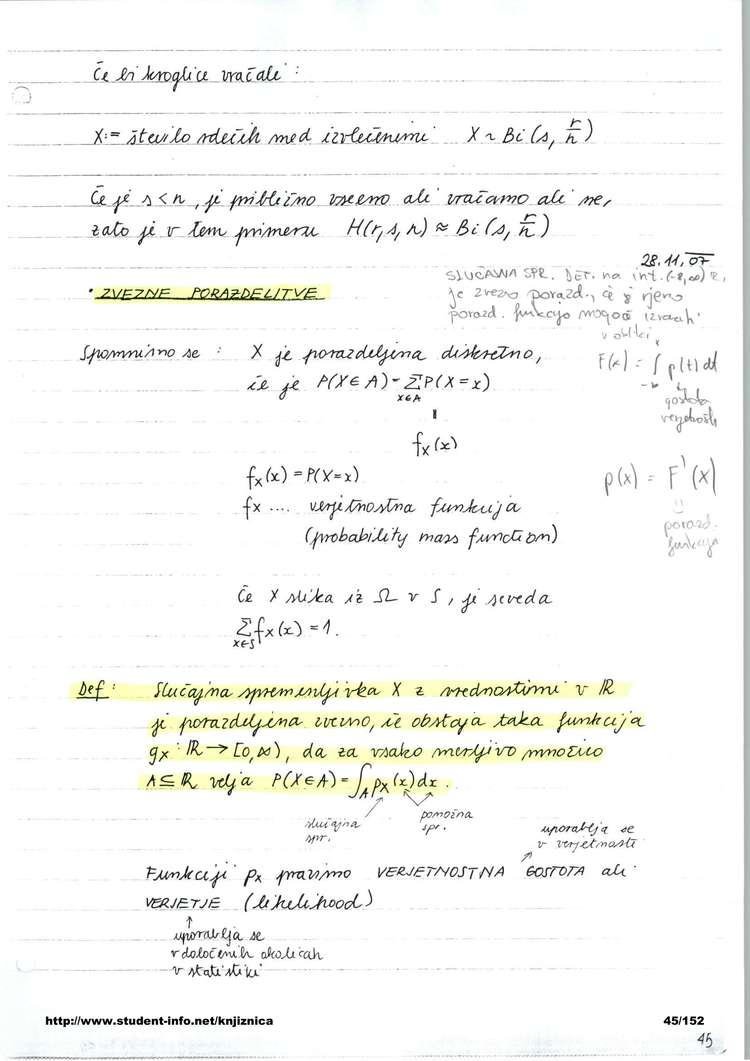 Če bi kroglice vračali:
X:= število rdečih med izvlečenimi X ~ Bi(s, r/n)
Če je s<n, je približno vseeno ali vračamo ali ne,
zato je v tem primeru H(r,s,n) ≈ Bi(s, r/n)
28.11.07
• ZVEZNE PORAZDELITVE
SLUČAJNA SPR. DEF. na int. (-∞,∞)
je zvezno porazd., če je njeno
porazd. funkcijo mogoče izraziti
v obliki
F(x) = ∫ p(t) dt
-∞
gostota
verjetnosti
p(x) = F'(x)
porazd.
funkcija
Spomnimo se : X je porazdeljena diskretno,
če je P(X∈A) = Σ P(X=x)
x∈A
"
fx(x)
fx(x) = P(X=x)
fx .... verjetnostna funkcija
(probability mass function)
Če X slika iz Ω v S, je seveda
Σ fx(x) = 1.
x∈S
Def: Slučajna spremenljivka X z vrednostimi v ℝ
je porazdeljena zvezno, če obstaja taka funkcija
gx: ℝ → [0,∞), da za vsako merljivo množico
A ⊆ ℝ velja P(X∈A) = ∫A px(x)dx.
slučajna
spr.
pomožna
spr.
uporablja se
v verjetnosti
Funkciji px pravimo VERJETNOSTNA GOSTOTA ali
VERJETJE (likelihood)
↑
uporablja se
v določenih okoliščinah
v statistiki
http://www.student-info.net/knjiznica 45/152
45